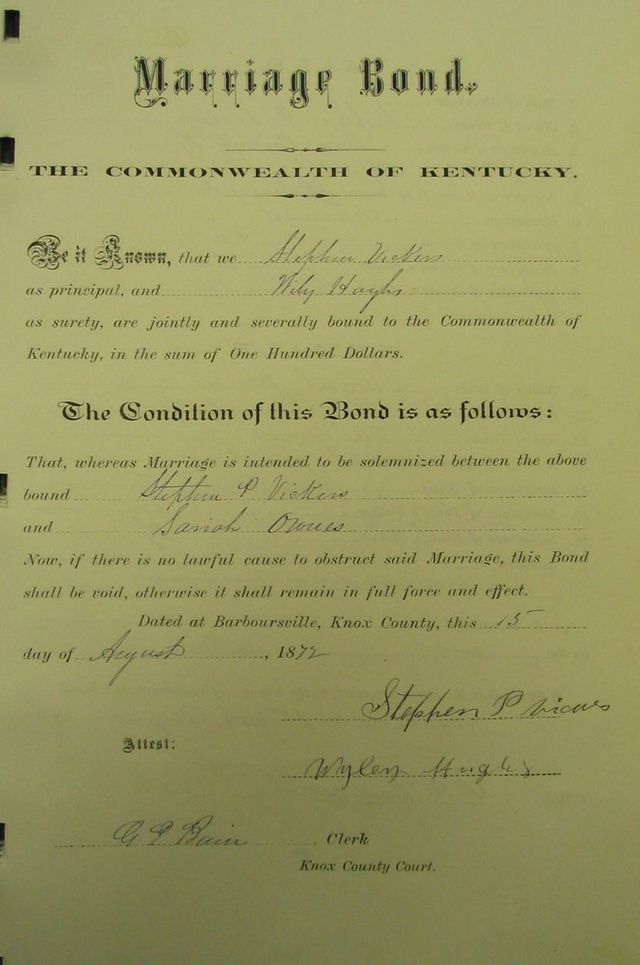 Marriage Bond.
THE COMMONWEALTH OF KENTUCKY.
Be it Known, that we Stephen Vickers
as principal, and Wily Hughs
as surety, are jointly and severally bound to the Commonwealth of
Kentucky, in the sum of One Hundred Dollars.
The Condition of this Bond is as follows:
That, whereas Marriage is intended to be solemnized between the above
bound Stephen P Vickers
and Sarah
Now, if there is no lawful cause to obstruct said Marriage, this Bond
shall be void, otherwise it shall remain in full force and effect.
Dated at Barboursville, Knox County, this 15
day of August, 1872
Stephen P
Attest:
Wyley Hughes
G P Bain Clerk
Knox County Court.